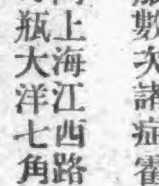 數次諸症霍
上海江西路
瓶大洋七角